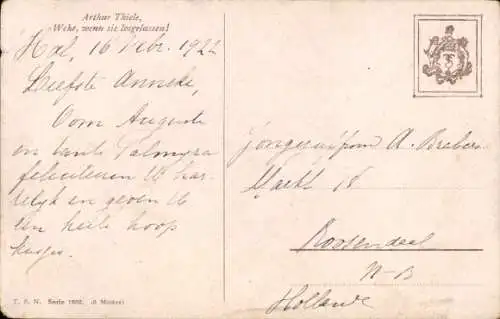 Arthur Thiele,
Wehe, wenn sie losgelassen!
Hxl, 16 Febr. 1922
Liefste Anneke,
Oom Auguste
en tante Palmyra
feliciteren U har-
telijk en geven U
een heele hoop
kusjes.
T. S. N. Serie 1602. (6 Muster)
jongejufrow A. Brabers
Markt 18
Roosendaal
N-B
Hollande